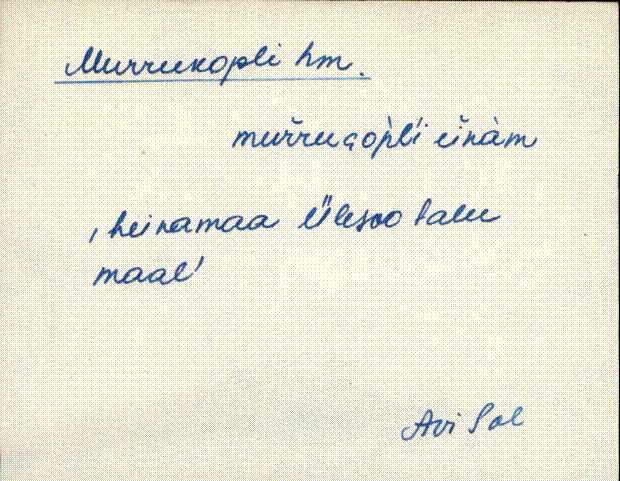 Murrukopli hm.
mur̆ruGòpl'i ei̯nàm
, heinamaa Ülesoo talu
maal'
Avi Sal